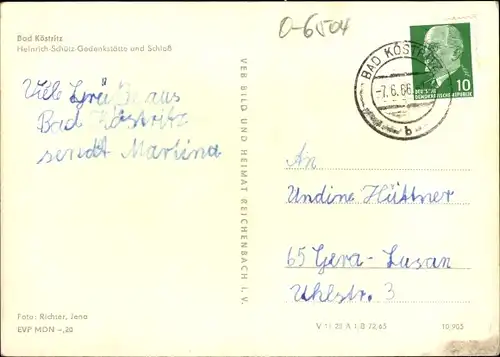 Bad Köstritz
Heinrich-Schütz-Gedenkstätte und Schloß
0-6504
BAD KÖSTRITZ
-7.6.66
b
10
DEUTSCHE
DEMOKRATISCHE REPUBLIK
Viele Grüße aus
Bad Köstritz
sendt Martina
VEB BILD UND HEIMAT REICHENBACH i. V.
An
Undine Hüttner
65 Gera-Lusan
Uhlstr. 3
Foto: Richter, Jena
EVP MDN -,20
V 11 28 A 1 B 72,65
10 905